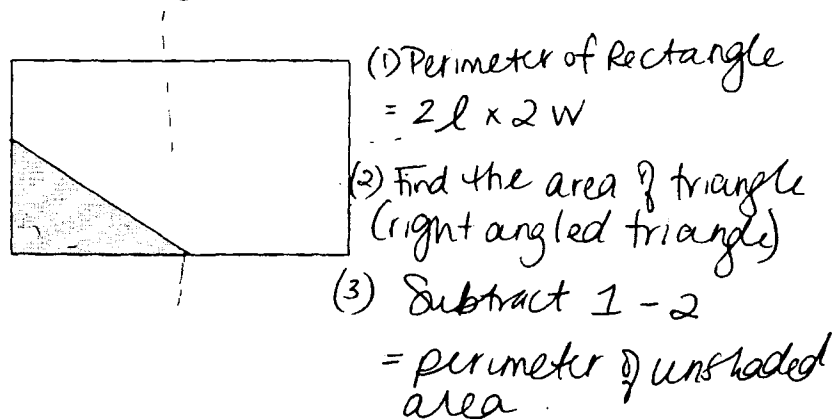 (1) Perimeter of Rectangle
= 2l x 2w
(2) Find the area of triangle
(right angled triangle)
(3) Subtract 1 - 2
= perimeter of unshaded
area.